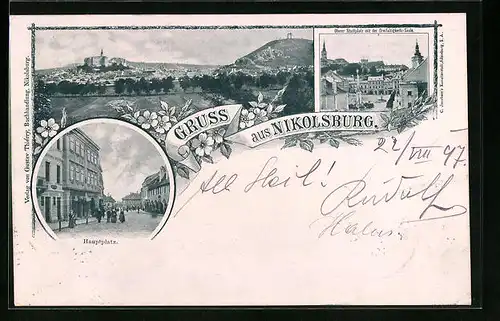 Oberer Stadtplatz mit der Dreifaltigkeits-Säule.
GRUSS
aus NIKOLSBURG.
22/VIII 97
All Heil!
Rudolf
Hauptplatz.
Verlag von Gustav Thiering, Buchhandlung, Nikolsburg.